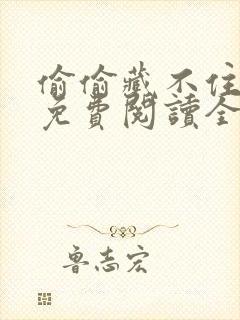 偷偷藏不住
免費閱讀全
鲁志宏